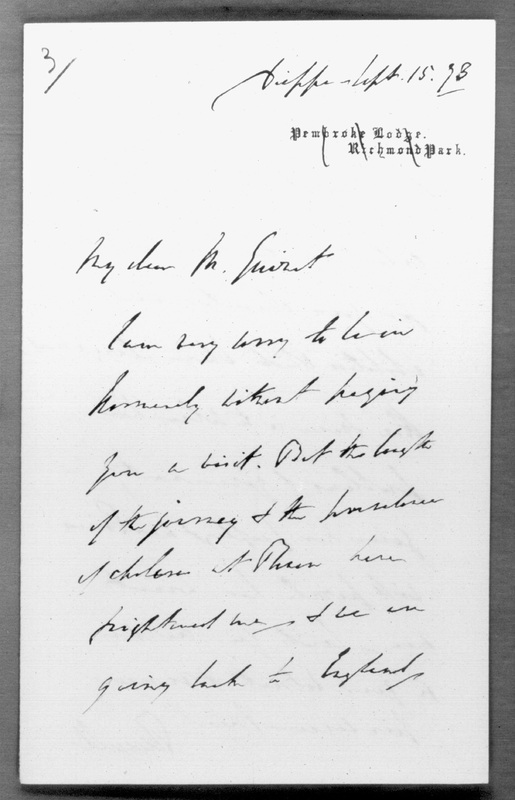 3/
Dieppe Sept. 15. 73
Pembroke Lodge.
Richmond Park.
My dear M. Guizot
I am very sorry to be in
Normandy without paying
you a visit. But the length
of the journey & the prevalence
of cholera at Rouen have
frightened me, & we are
going back to England